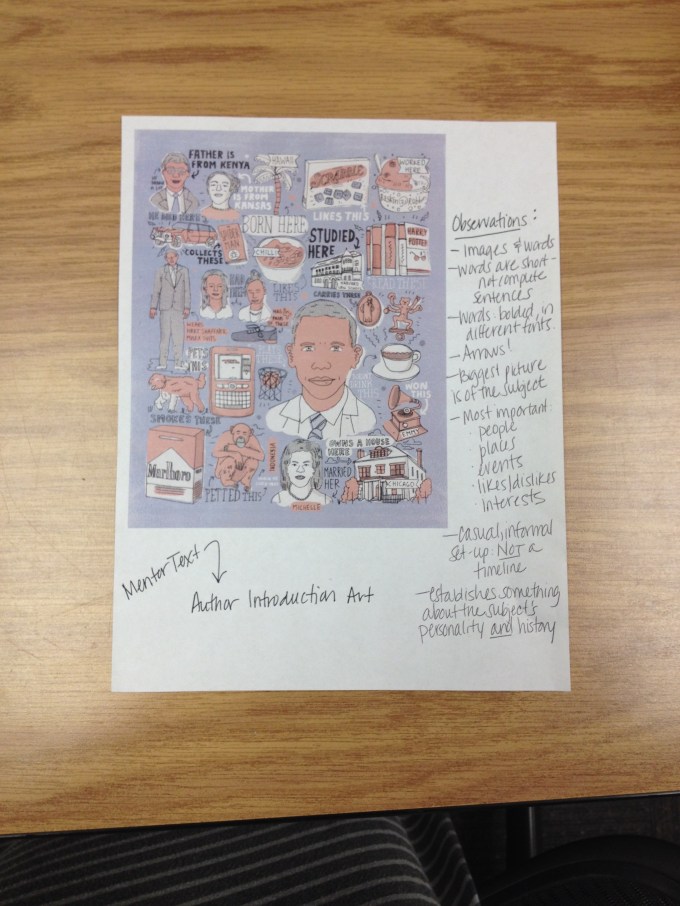 FATHER IS
FROM KENYA
MOTHER
IS FROM
KANSAS
HAWAII
SCRABBLE
LIKES THIS
WORKED
HERE
BORN HERE
COLLECTS
THESE
SPIDER
MAN
CHILI
STUDIED
HERE
HARRY
POTTER
READ THESE
WEARS
MAKE SUITS
PETS
THIS
WON
THIS
SMOKES THESE
Marlboro
PETTED THIS
OWNS A HOUSE
HERE
MARRIED
HER
CHICAGO
MICHELLE
Observations:
- Images & words
- Words are short -
not complete
sentences
- Words bolded, in
different fonts.
- Arrows!
- Biggest picture
is of the subject
- Most important:
· people
· places
· events
· likes/dislikes
· interests
- casual, informal
set-up. NOT a
timeline
- establishes something
about the subject's
personality and history
Mentor Text
Author Introduction Art